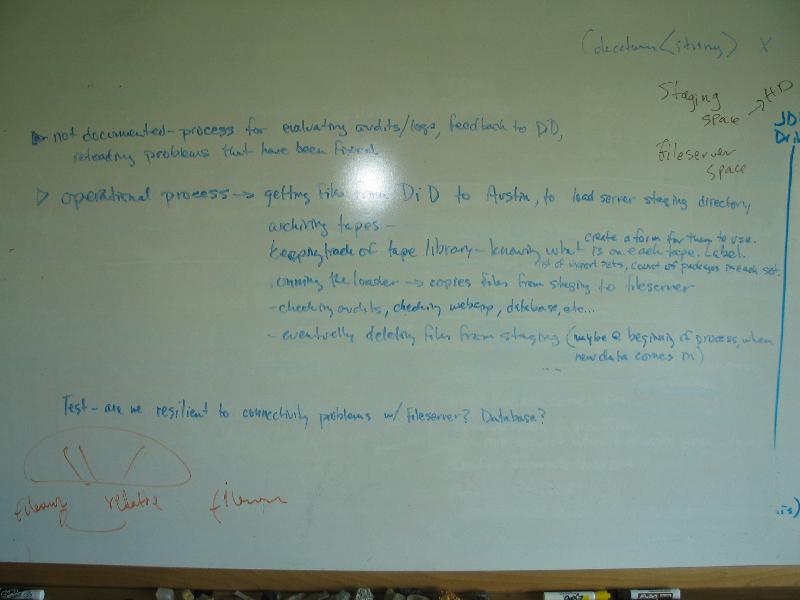 (string) X
Staging
space → HD
Fileserver
space
not documented - process for evaluating audits/logs, feedback to DiD,
reloading problems that have been fixed.
operational process → getting files from DiD to Austin, to load server staging directory
archiving tapes -
create a form for them to use.
keeping track of tape library - knowing what is on each tape. Label.
list of export sets, count of packages in each set.
running the loader → copies files from staging to fileserver
- checking audits, checking webapp, database, etc...
- eventually deleting files from staging (maybe @ beginning of process, when
new data comes in)
...
Test - are we resilient to connectivity problems w/ fileserver? Database?
relative